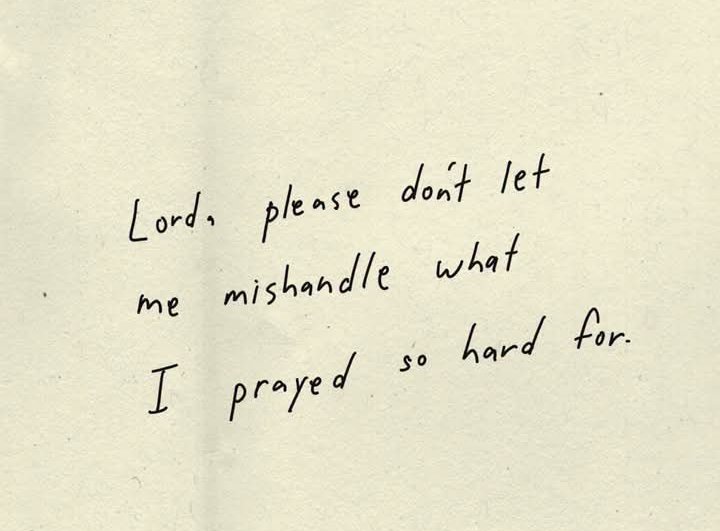 Lord, please don't let
me mishandle what
I prayed so hard for.